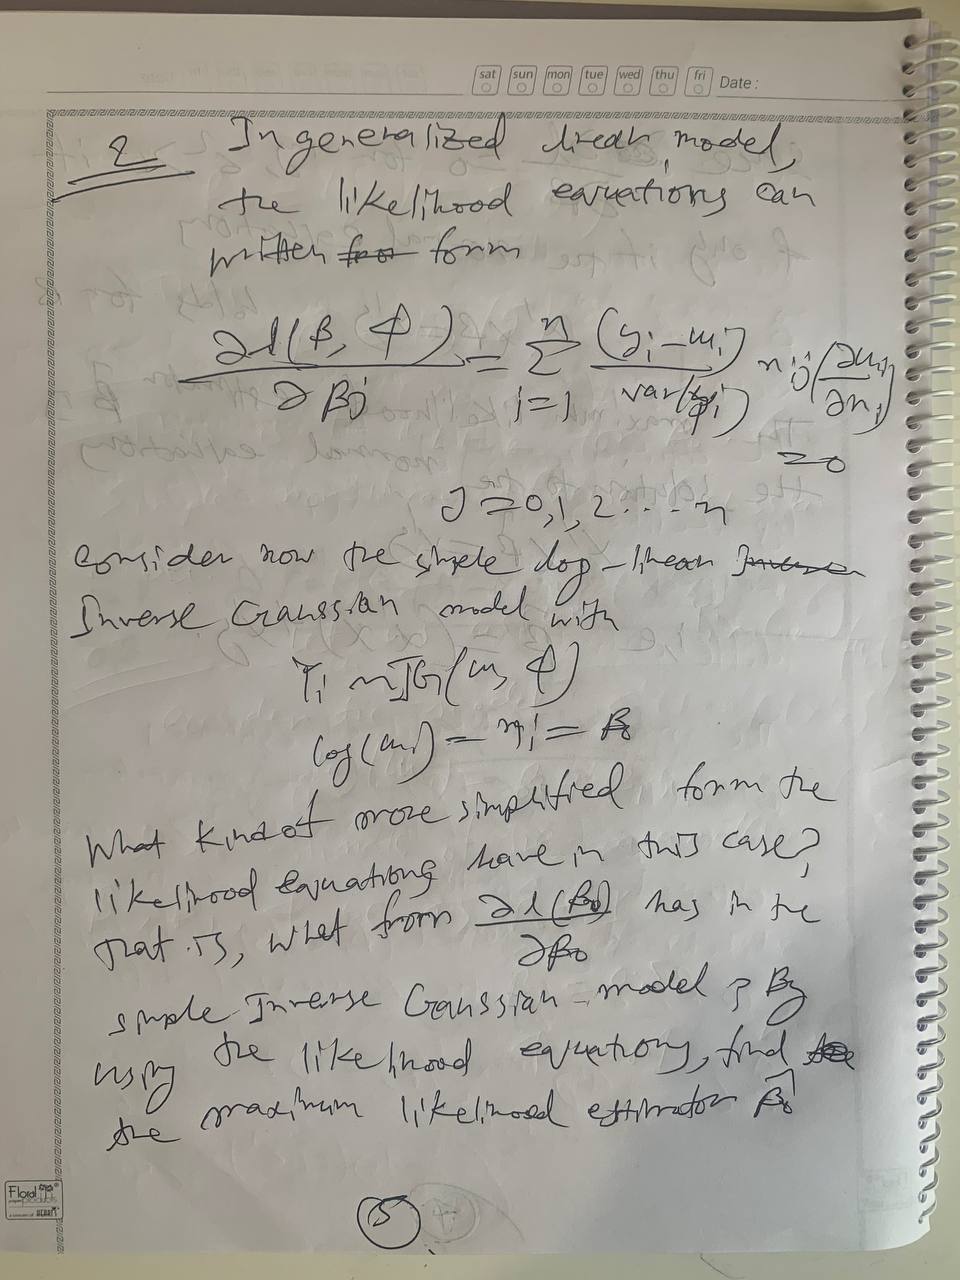 sat sun mon tue wed thu fri Date :
2 In generalized linear model,
the likelihood equations can
written form
∂l(β, ϕ) / ∂βj = n∑i=1 (yi − μi) / var(yi) xij (∂μi / ∂ηi)
= 0
J = 0, 1, 2 .... n
Consider now the simple log-linear
Inverse Gaussian model with
Yi ~ IG(μi, ϕ)
log(μi) = ηi = β0
What kind of more simplified form the
likelihood equations have in this case?
that is, what from ∂l(β0) / ∂β0 has in the
simple Inverse Gaussian model? By
using the likelihood equations, find
the maximum likelihood estimator β̂0
Floral
products
5